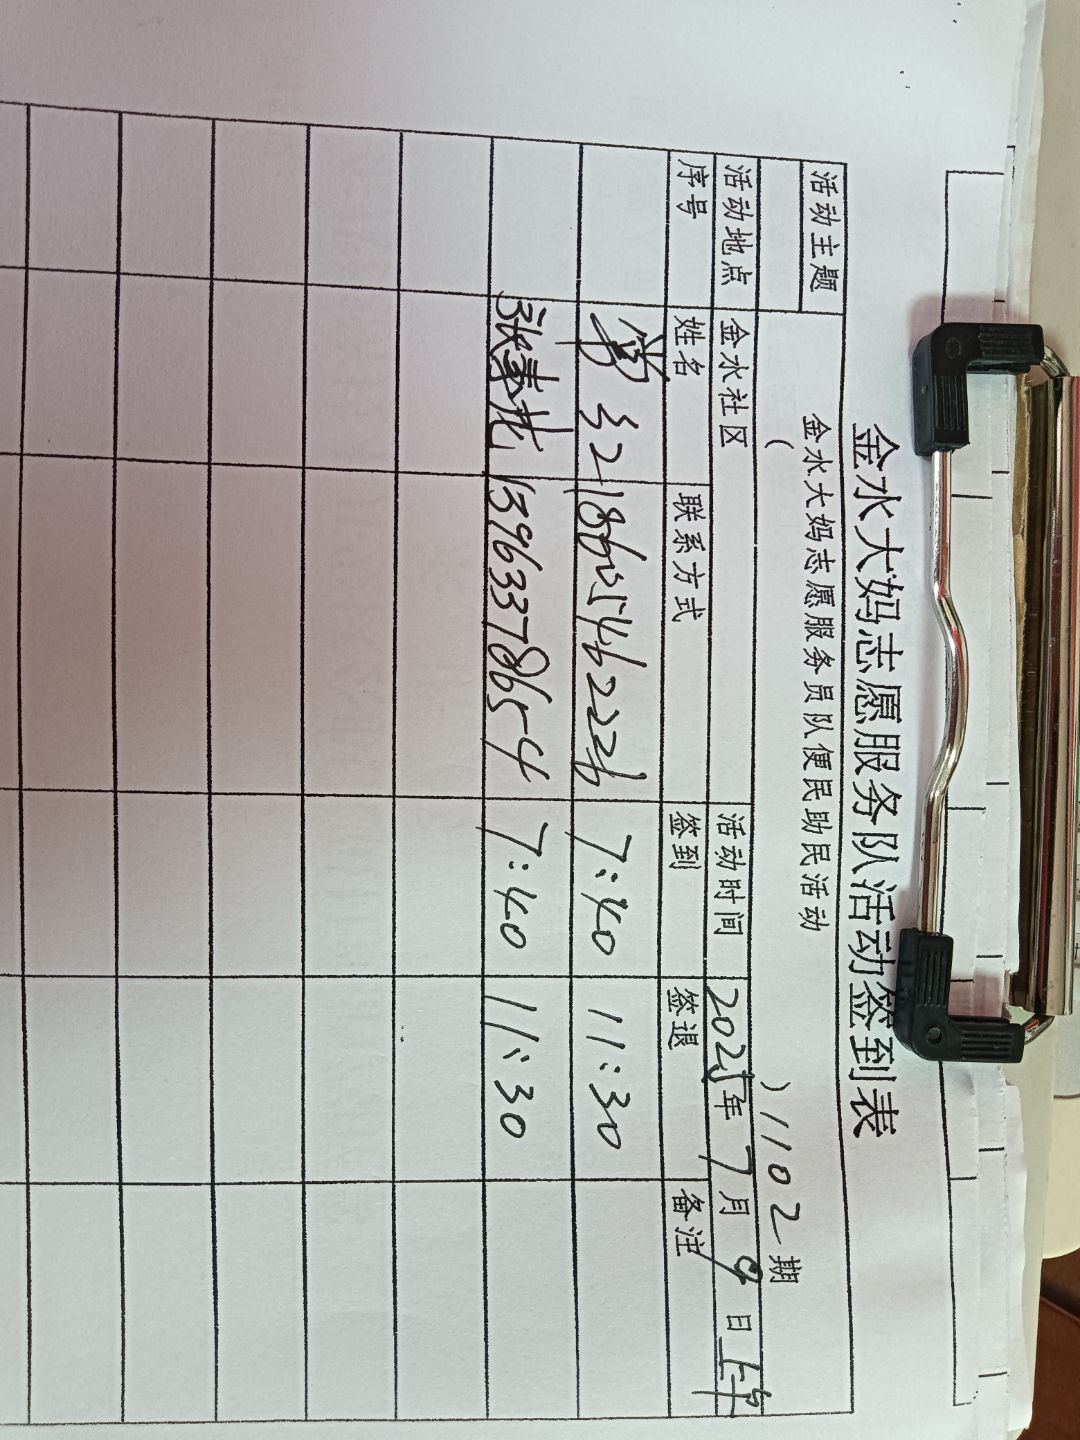 金水大妈志愿服务队活动签到表
活动主题 金水大妈志愿服务员队便民助民活动
( ) 1102期
活动地点 金水社区 活动时间 2025年7月9日上午
序号 姓名 联系方式 签到 签退 备注
18605462226 7:40 11:30
张春花 13963378654 7:40 11:30